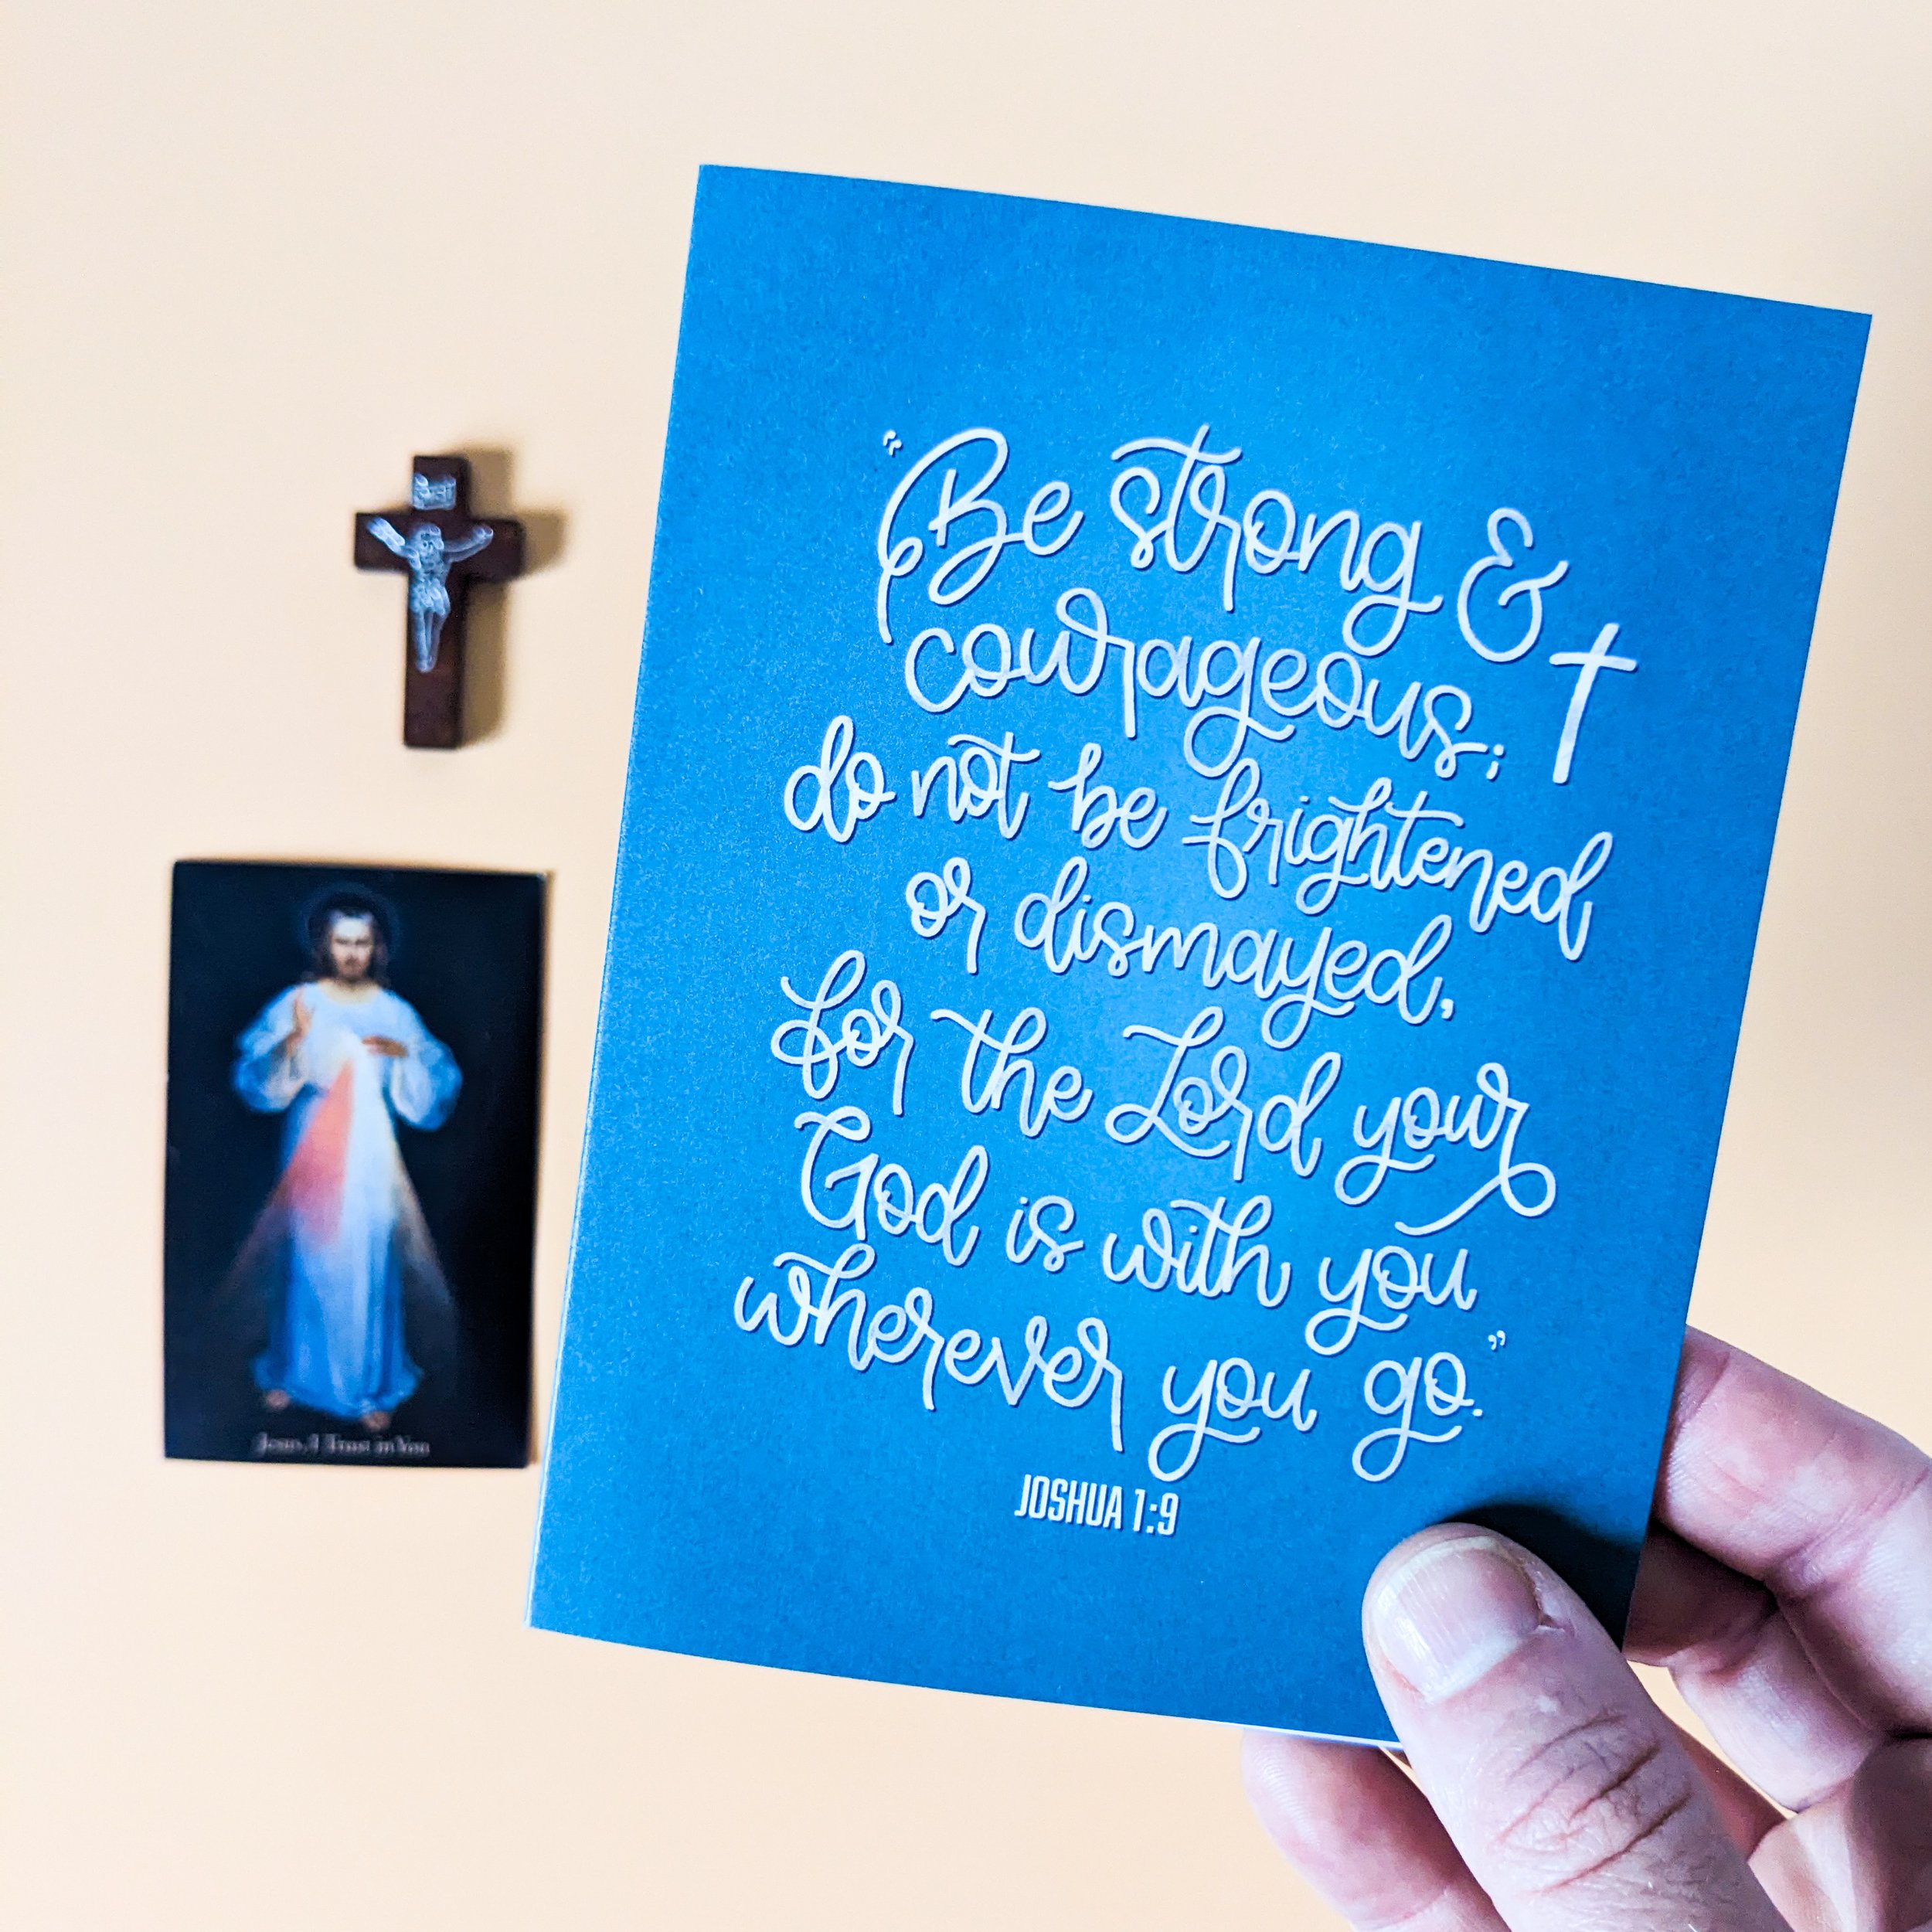 “Be strong &
courageous;
do not be frightened
or dismayed,
for the Lord your
God is with you
wherever you go.”
JOSHUA 1:9
Jesus, I Trust in You